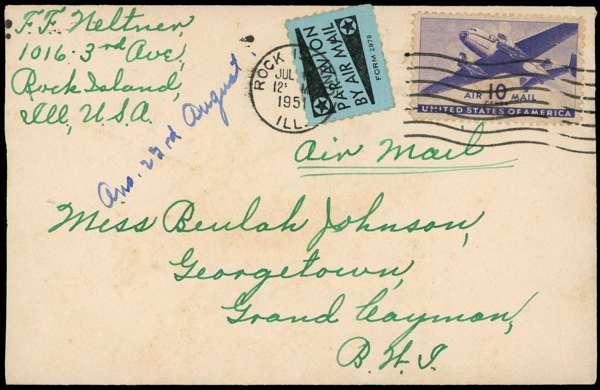 F.F. Neltner,
1016-3rd Ave,
Rock Island,
Ill, U.S.A.
Ans. 23rd August
ROCK
JUL
12
1951
ILL.
PAR AVION
BY AIR MAIL
FORM 2978
AIR 10 MAIL
CENTS
UNITED STATES OF AMERICA
Air Mail
Miss Beulah Johnson,
Georgetown,
Grand Cayman,
B.W.I.